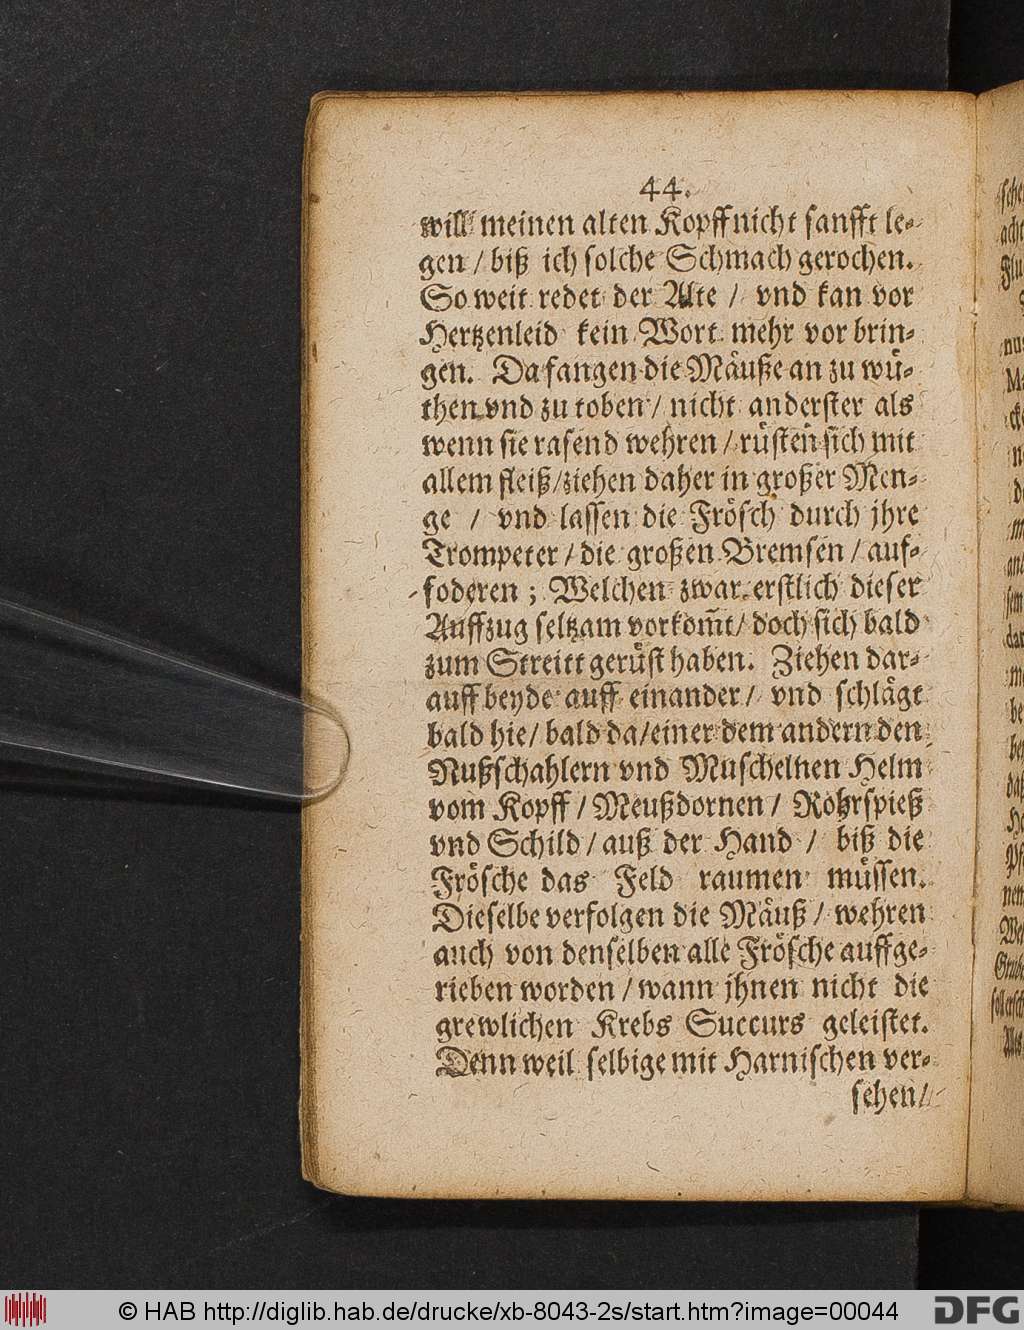 44.
will meinen alten Kopff nicht sanfft le-
gen / biß ich solche Schmach gerochen.
So weit redet der Alte / vnd kan vor
Hertzenleid kein Wort mehr vor brin-
gen. Da fangen die Mäuße an zu wü-
then vnd zu toben / nicht anderster als
wenn sie rasend wehren / rüsten sich mit
allem fleiß / ziehen daher in großer Men-
ge / vnd lassen die Frösch durch jhre
Trompeter / die großen Bremsen / auf-
foderen ; Welchen zwar erstlich dieser
Auffzug seltzam vorkom̃t / doch sich bald
zum Streitt gerüst haben. Ziehen dar-
auff beyde auff einander / vnd schlägt
bald hie / bald da / einer dem andern den
Nußschahlern vnd Muschelnen Helm
vom Kopff / Meußdornen / Rohrspieß
vnd Schild / auß der Hand / biß die
Frösche das Feld raumen müssen.
Dieselbe verfolgen die Mäuß / wehren
auch von denselben alle Frösche auffge-
rieben worden / wann jhnen nicht die
grewlichen Krebs Succurs geleistet.
Denn weil selbige mit Harnischen ver-
sehen /
© HAB http://diglib.hab.de/drucke/xb-8043-2s/start.htm?image=00044
DFG